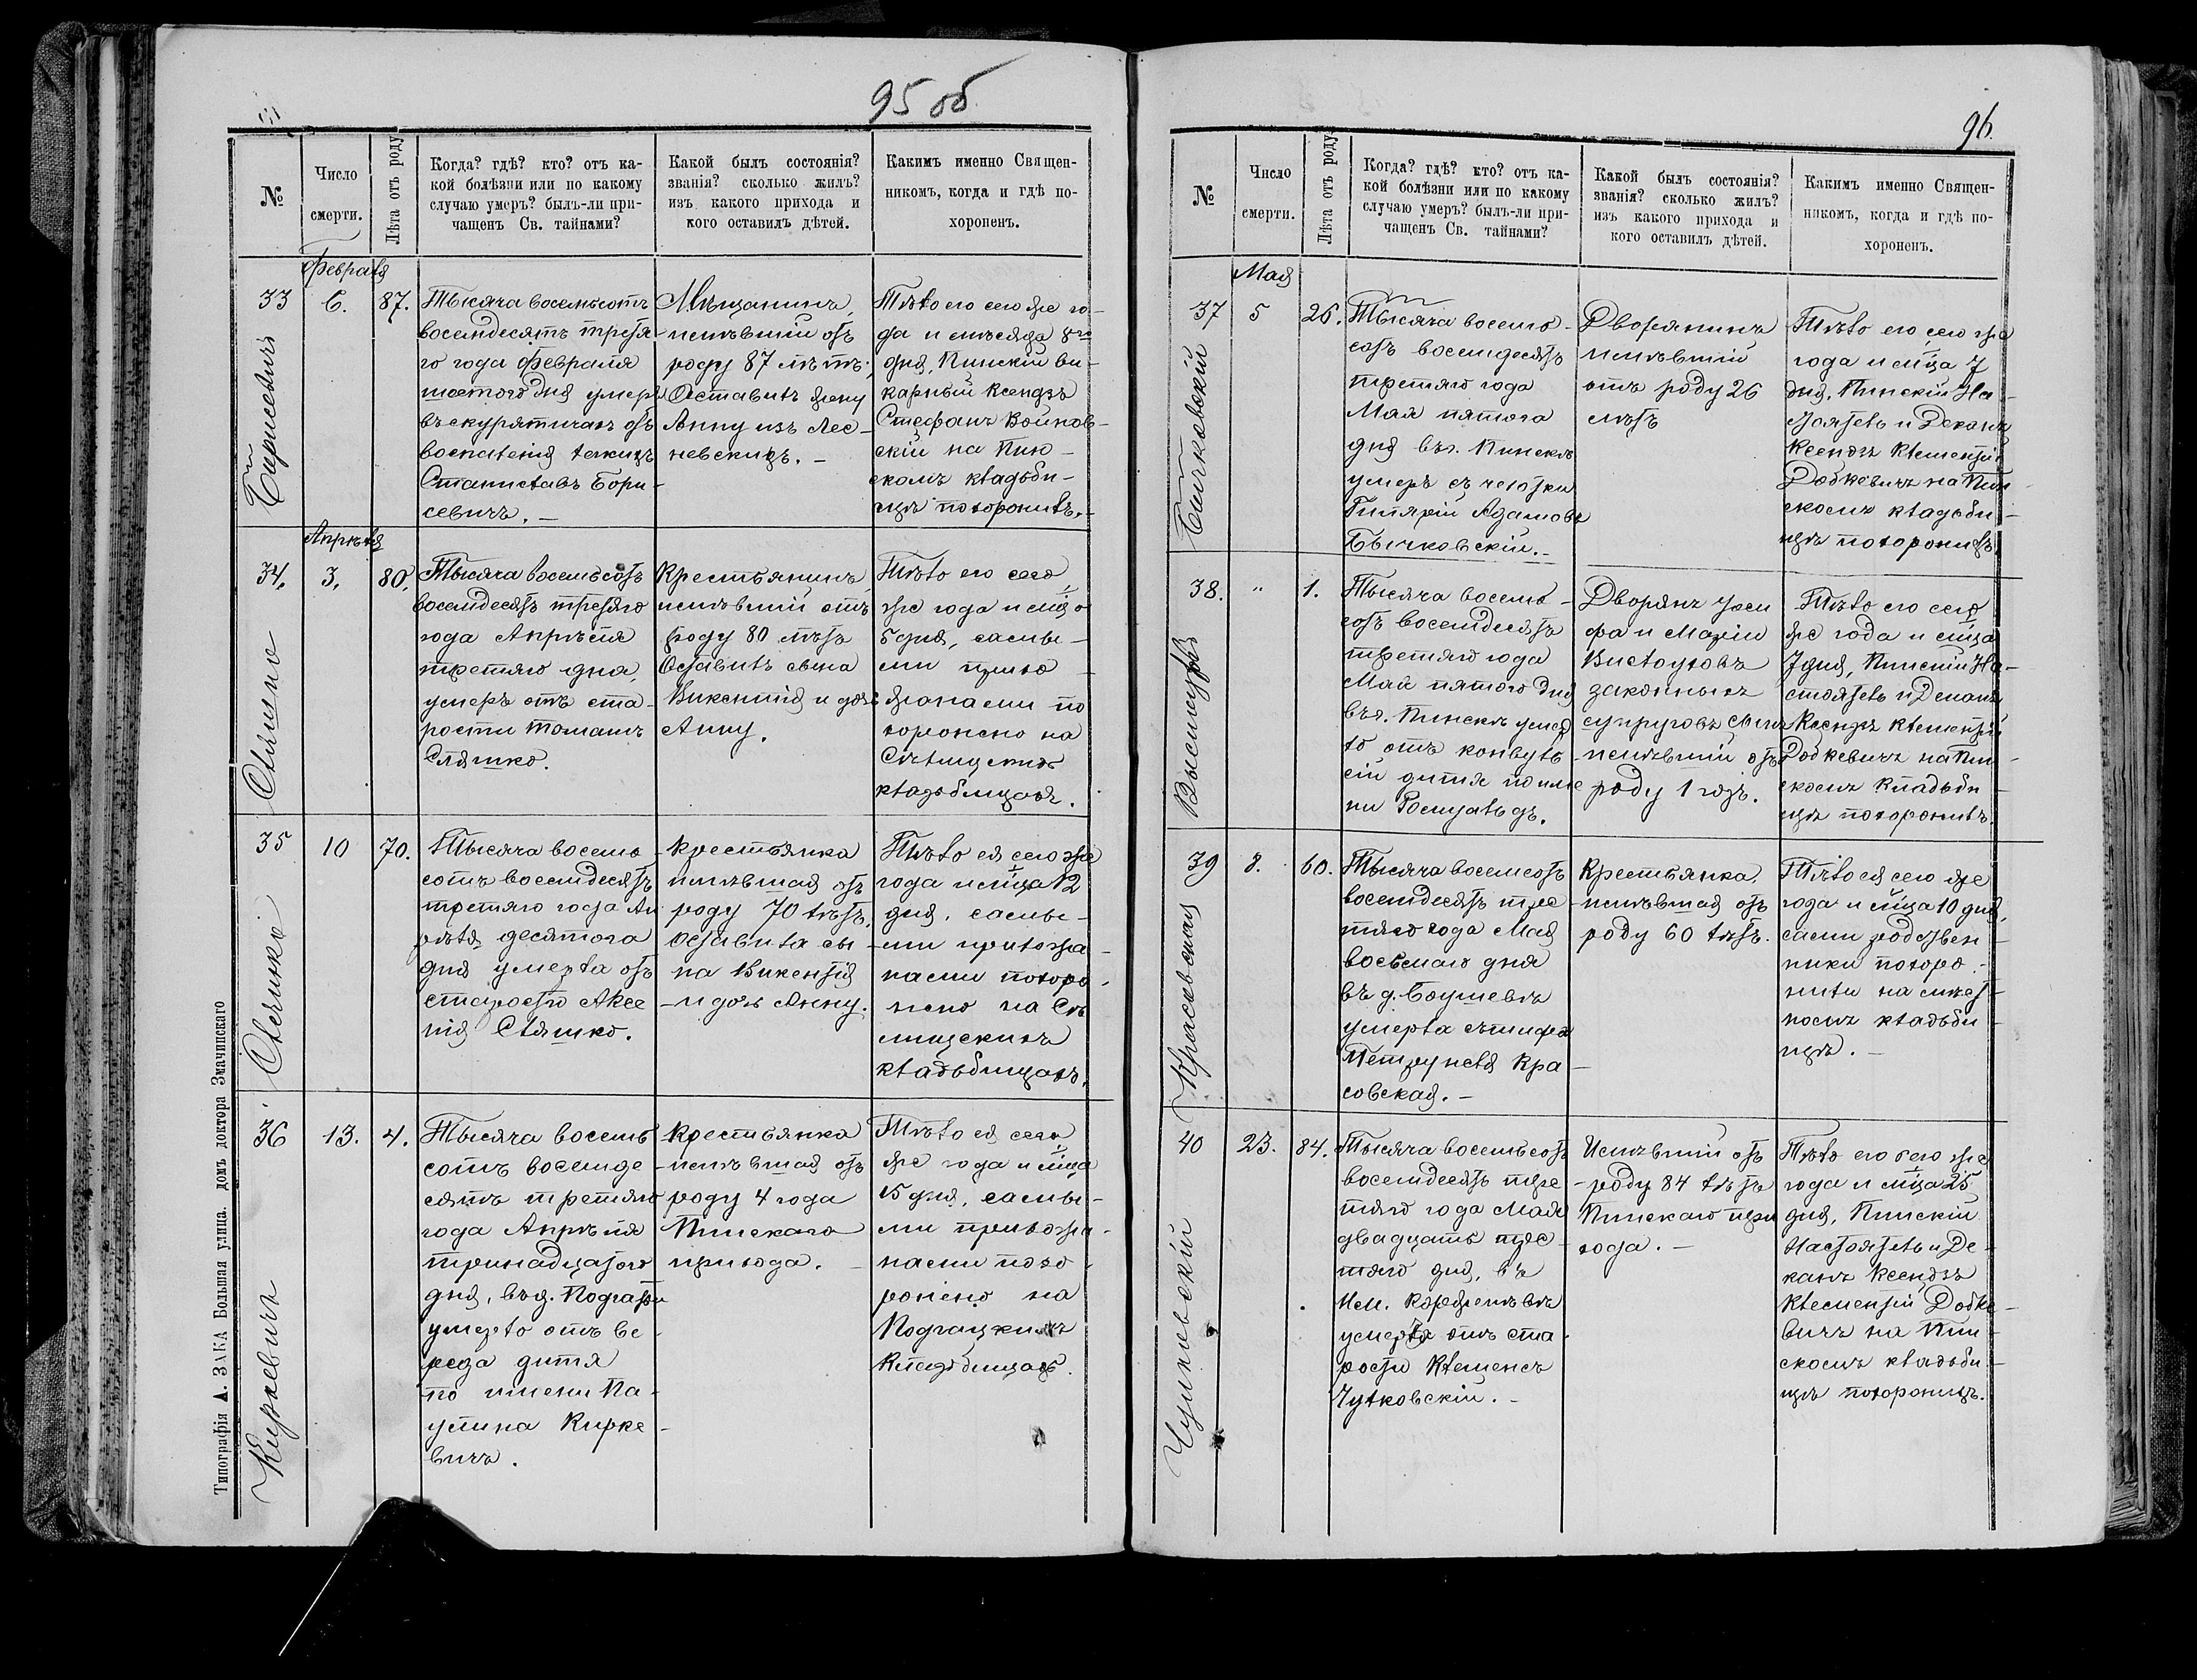 95 об
№
Число
смерти.
Лѣта отъ роду
Когда? гдѣ? кто? отъ ка-
кой болѣзни или по какому
случаю умеръ? былъ-ли при-
чащенъ Св. тайнами?
Какой былъ состоянія?
званія? сколько жилъ?
изъ какого прихода и
кого оставилъ дѣтей.
Какимъ именно Священ-
никомъ, когда и гдѣ по-
хороненъ.
Февраля
33
6.
87.
Борисевичъ
Тысяча восемьсотъ
восемдесятъ третя-
го года Февраля
шестого дня умеръ
въ скурятичахъ отъ
воспаленія
Станиславъ Бори-
севичъ. -
Мѣщанинъ,
имѣвшій отъ
роду 87 лѣтъ;
Оставилъ жену
Анну изъ Лес-
невскихъ. -
Тѣло его сего же го-
да и мѣсяца 8го
дня, Пинскій ви-
карный Ксендзъ
Стефанъ Войнов-
скій на Пин-
скомъ кладби-
щѣ похоронилъ. -
Апрѣля
34.
3.
80.
Сляшко
Тысяча восемьсотъ
восемдесятъ третяго
года Апрѣля
третяго дня,
умеръ отъ ста-
рости Томашъ
Сляшко.
Крестьянинъ,
имѣвшій отъ
роду 80 лѣтъ
Оставилъ сына
Викентія и дочь
Анну.
Тѣло его сего
же года и мца
5 дня, самы-
ми прихо-
жанами по
хоронено на
кладбищахъ.
35
10
70.
Тысяча восемь-
сотъ восемдесятъ
третяго года Ап
рѣля десятого
дня умерла отъ
старости Аксе
нія Сляшко.
Крестьянка
имѣвшая отъ
роду 70 лѣтъ,
оставила сы-
на Викентія
и дочь Анну.
Тѣло ея сего же
года и мца 12
дня, самы-
ми прихожа-
нами похоро-
нено на
кладбищахъ.
36
13.
4.
Киркевичъ
Тысяча восемь
сотъ восемде-
сятъ третяго
года Апрѣля
тринадцатого
дня, въ д.
умерло отъ ве-
реда дитя
по имени Па-
улина Кирке-
вичъ.
Крестьянка
имѣвшая отъ
роду 4 года
Пинскаго
прихода. -
Тѣло ея сего
же года и мца
15 дня, самы-
ми прихожа-
нами похо-
ронено на
кладбищахъ.
Типографія А. ЗАКА Большая улица. домъ доктора Змачинскаго
96.
№
Число
смерти.
Лѣта отъ роду
Когда? гдѣ? кто? отъ ка-
кой болѣзни или по какому
случаю умеръ? былъ-ли при-
чащенъ Св. тайнами?
Какой былъ состоянія?
званія? сколько жилъ?
изъ какого прихода и
кого оставилъ дѣтей.
Какимъ именно Священ-
никомъ, когда и гдѣ по-
хороненъ.
Мая
37
5
26.
Бычковскій
Тысяча восемь-
сотъ восемдесятъ
третяго года
Мая пятого
дня въ г. Пинскѣ
умеръ съ чехотки
Гилярій Адамовъ
Бычковскій. -
Дворянинъ
имѣвшій
отъ роду 26
лѣтъ
Тѣло его сего же
года и мца 7
дня, Пинскій На-
стоятель и Деканъ
Ксендзъ Клементій
Додкевичъ на Пин
скомъ кладби-
щѣ похоронилъ.
38.
"
1.
Тысяча восемь-
сотъ восемдесятъ
третяго года
Мая пятого дня
въ г. Пинскѣ умер
ло отъ конвуль-
сій дитя по име
ни Ромуальдъ.
Дворянъ Іоси
фа и Маріи
законныхъ
супруговъ сынъ
имѣвшій отъ
роду 1 годъ.
Тѣло его сего
же года и мца
7 дня, Пинскій На-
стоятель и Деканъ
Ксендзъ Клементій
Додкевичъ на Пин-
скомъ Кладби-
щѣ похоронилъ.
39
8.
60.
Красовская
Тысяча восемсотъ
восемдесятъ тре-
тяго года Мая
восьмаго дня
въ д.
умерла съ тифа
Петрунеля Кра-
совская. -
Крестьянка,
имѣвшая отъ
роду 60 лѣтъ.
Тѣло ея сего же
года и мца 10 дня,
сами родствен-
ники похоро-
нили на мѣст-
номъ кладби-
щѣ. -
40
23.
84.
Чулковскій
Тысяча восемьсотъ
восемдесятъ тре-
тяго года Мая
двадцать тре-
тяго дня, въ
им.
умеръ отъ ста-
рости Клеменсъ
Чулковскій. -
Имѣвшій отъ
роду 84 лѣтъ
Пинскаго при
хода. -
Тѣло его сего же
года и мца 25
дня, Пинскій
Настоятель и Де-
канъ Ксендзъ
Клементій Додке-
вичъ на Пин-
скомъ кладби-
щѣ похоронилъ.